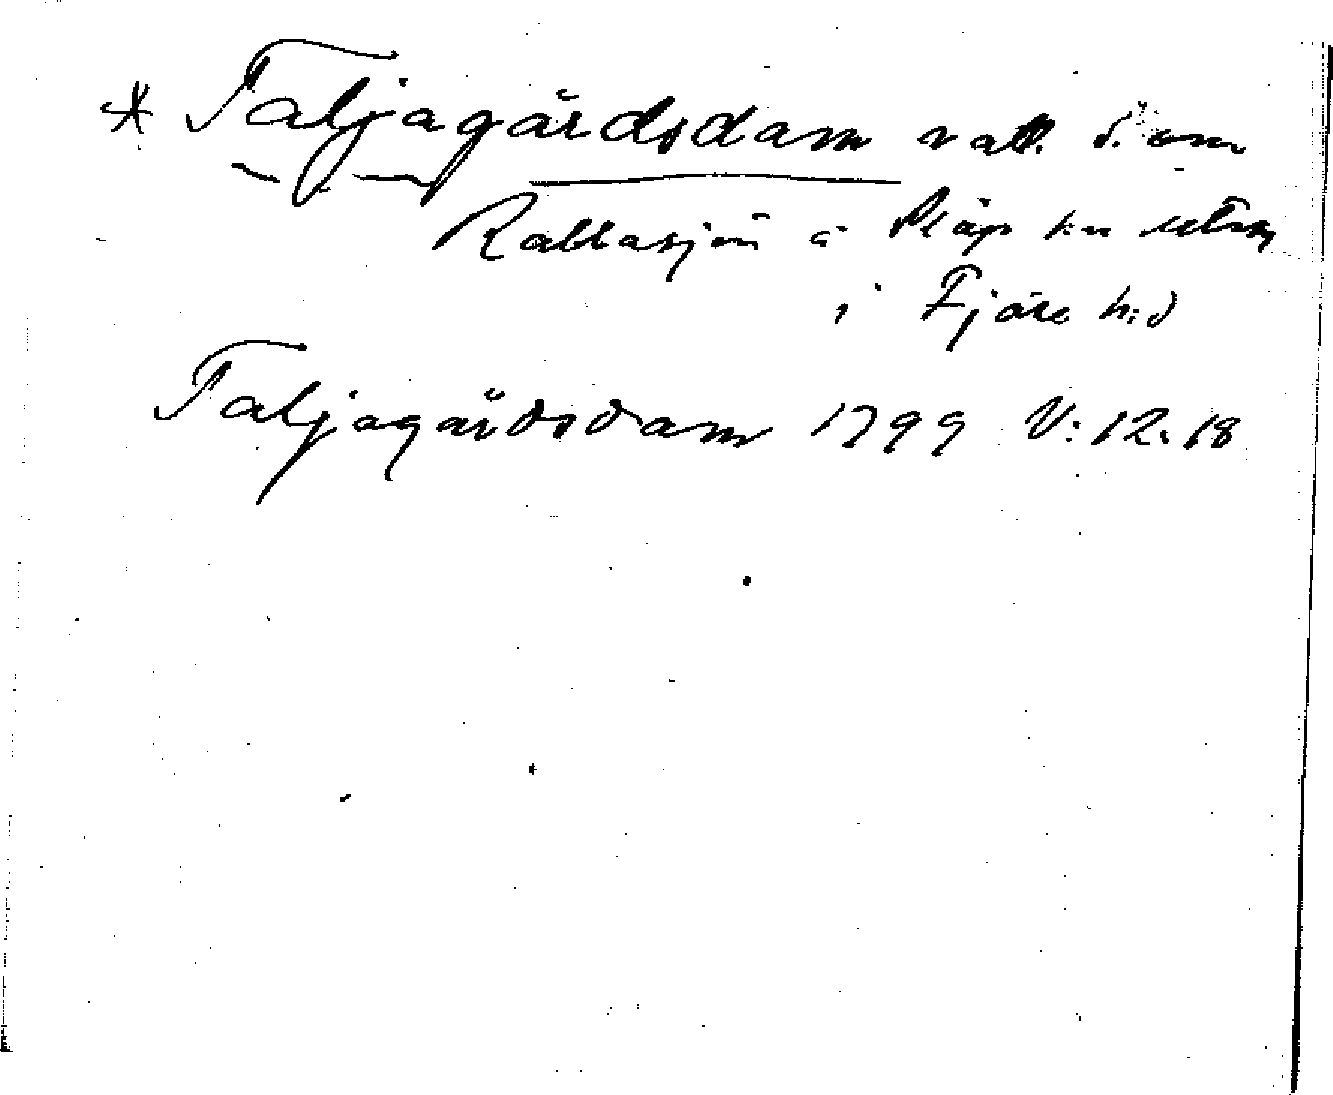 * Taljagärdsdam vatt. ö. om
Rallasjön å Släp
i Fjäre h:d
Taljagärdsdam 1799 V: 12. 18